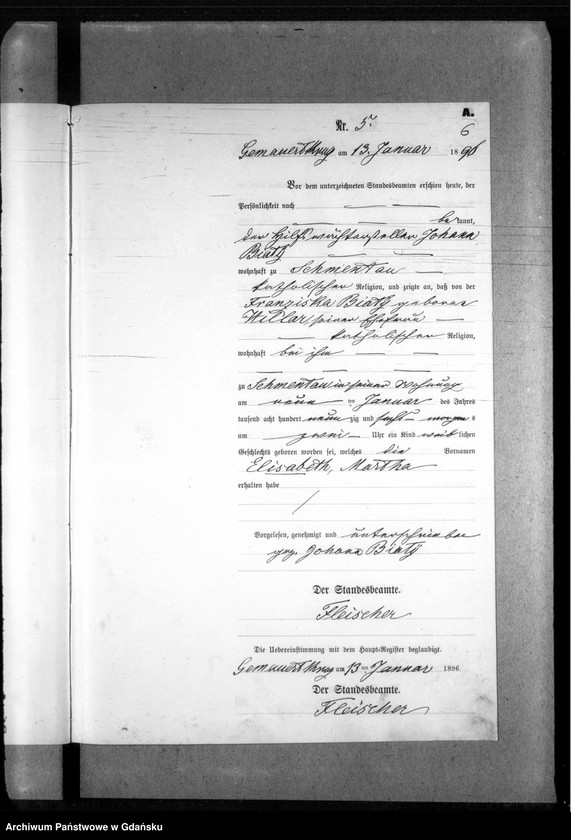 A.
Nr. 5.
6
Gemauert Krug am 13. Januar 1896
Vor dem unterzeichneten Standesbeamten erschien heute, der
Persönlichkeit nach
bekannt,
der Hilfsweichensteller Johann
Biaty
wohnhaft zu Schmentau
katholischer Religion, und zeigte an, daß von der
Franziska Biaty geborene
seiner Ehefrau
katholischer Religion,
wohnhaft bei ihm
zu Schmentau in seiner Wohnung
am neun ten Januar des Jahres
tausend acht hundert neun zig und sechs morgens
um zwei Uhr ein Kind weiblichen
Geschlechts geboren worden sei, welches die Vornamen
Elisabeth, Martha
erhalten habe
Vorgelesen, genehmigt und unterschrieben
gez. Johann Biaty
Der Standesbeamte.
Fleischer
Die Uebereinstimmung mit dem Haupt-Register beglaubigt.
Gemauert Krug am 13 ten Januar 1896.
Der Standesbeamte.
Fleischer
Archiwum Państwowe w Gdańsku